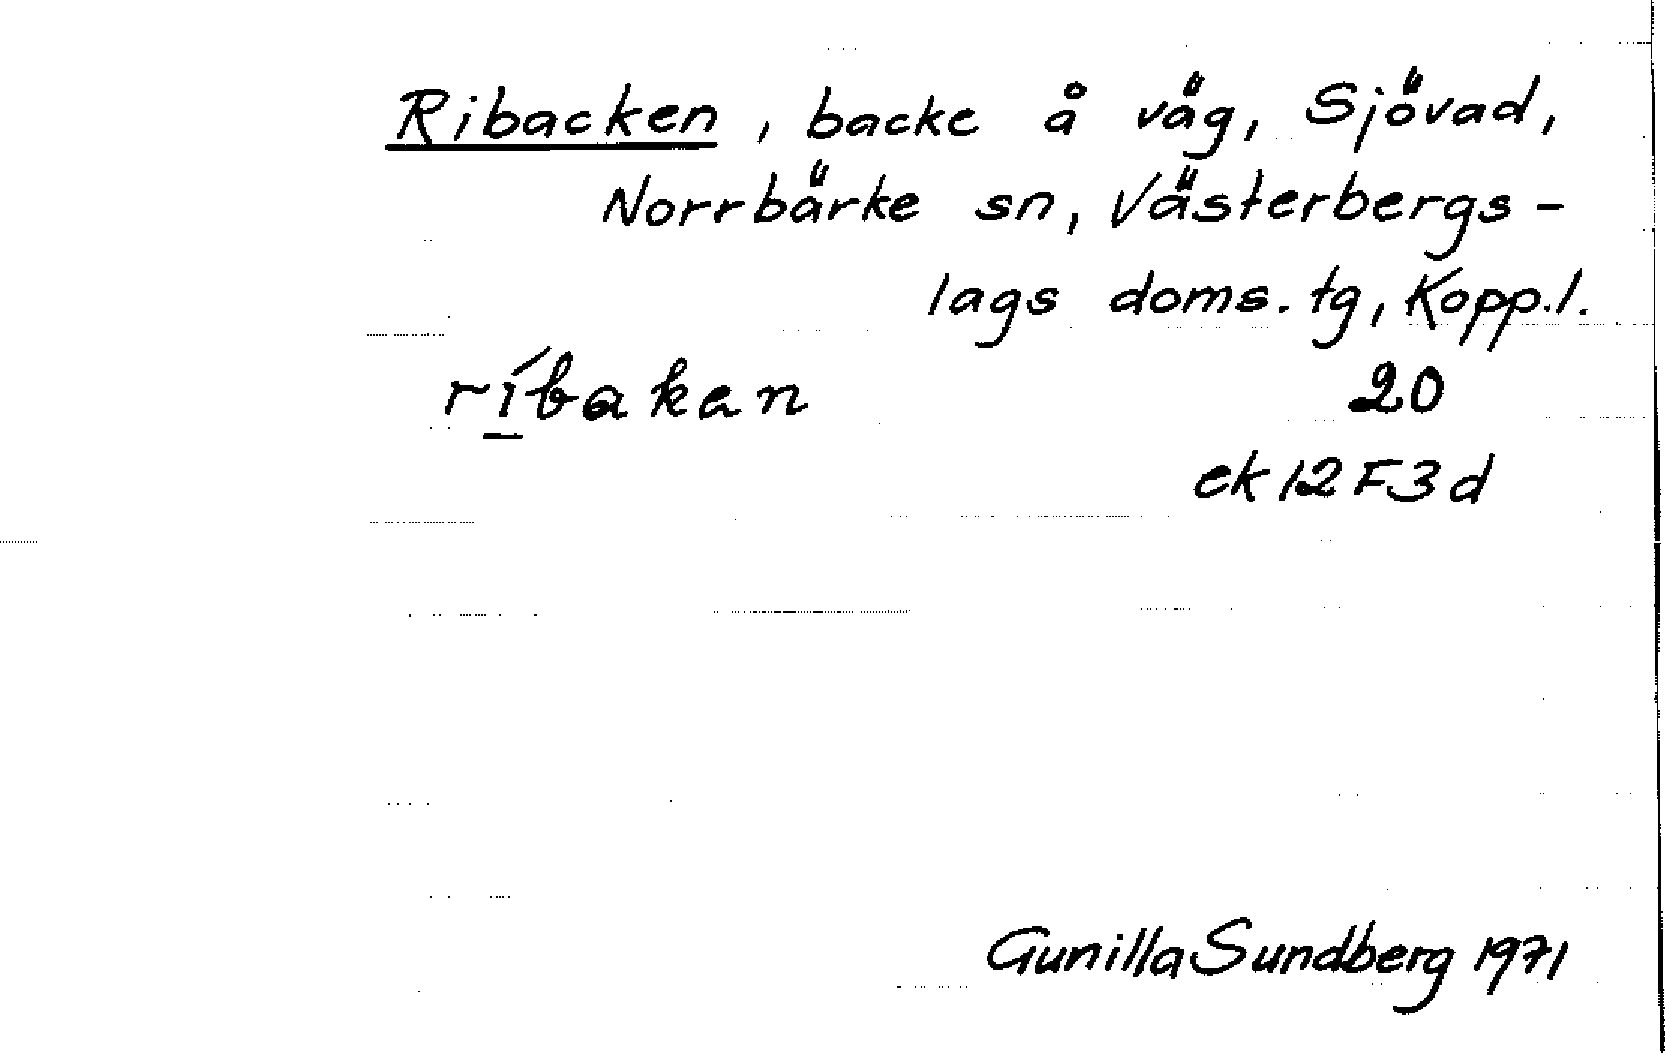 Ribacken, backe å väg, Sjövad,
Norrbärke sn, Västerbergs-
lags doms. tg, Kopp.l.
rı̱́bakan 20
ek 12 F3d
Gunilla Sundberg 1971